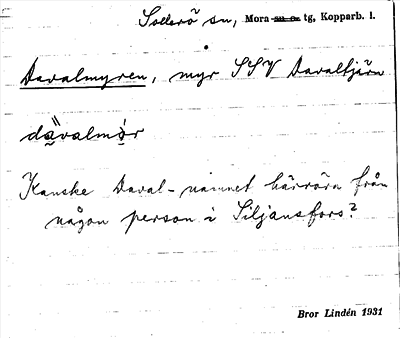 Sollerö sn, Mora sn o. tg, Kopparb. l.
Davalmyren, myr SSV Davaltjärn
dävalmỏr
Kanske Daval-namnet härröra från
någon person i Siljansfors?
Bror Lindén 1931